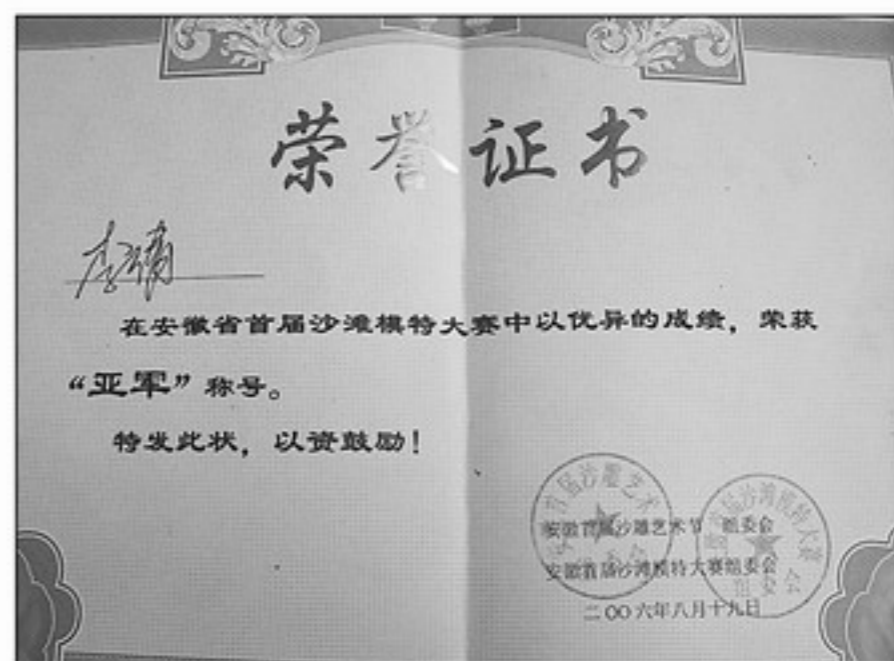 荣誉证书
李
在安徽省首届沙滩模特大赛中以优异的成绩，荣获
“亚军”称号。
特发此状，以资鼓励！
安徽首届沙雕艺术节 组委会
安徽首届沙滩模特大赛组委会
二〇〇六年八月十九日